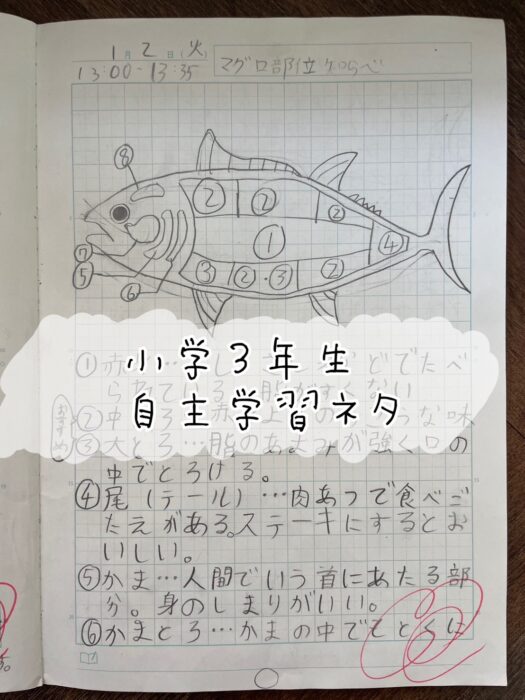 1月2日(火)
13:00-13:35
マグロ部位夕らべ
⑧
②
②
②
①
④
③
②・③
②
⑦
⑤
⑥
小学3年生
自主学習ネタ
①赤
②中
味
③大とろ…脂のあまみが強く口の
中でとろける。
④尾(テール)…肉あつで食べご
たえがある。ステーキにするとお
いしい。
⑤かま…人間でいう首にあたる部
分。身のしまりがいい。
⑥かまとろ…かまの中でもとくに